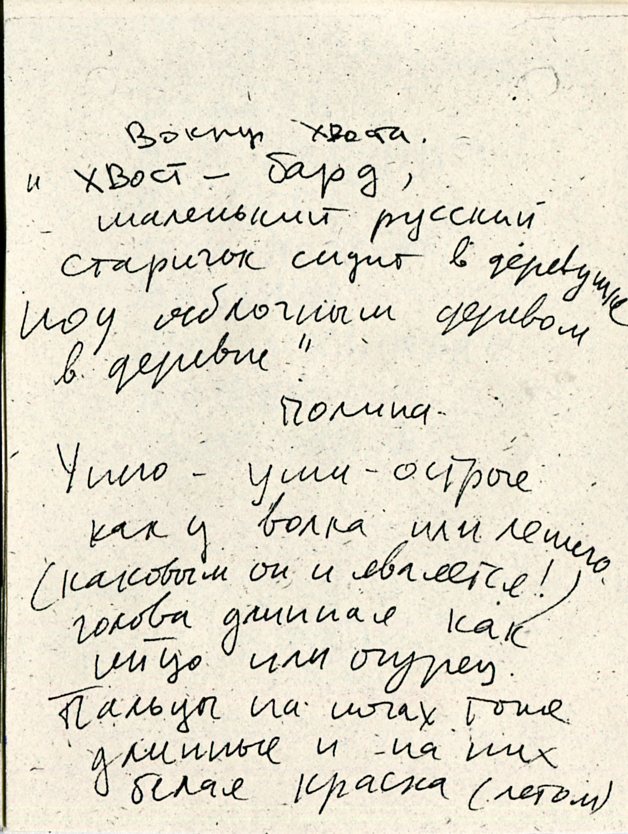 Вокруг хвоста.
"Хвост – бард,
маленький русский
старичок сидит в деревушке
под яблочным деревом
в деревне"
Полина.
Ухо – уши – острые
как у волка или лешего
(каковым он и является!)
голова длинная как
яйцо или огурец.
Пальцы на ногах тоже
длинные и – на них
белая краска (летом)